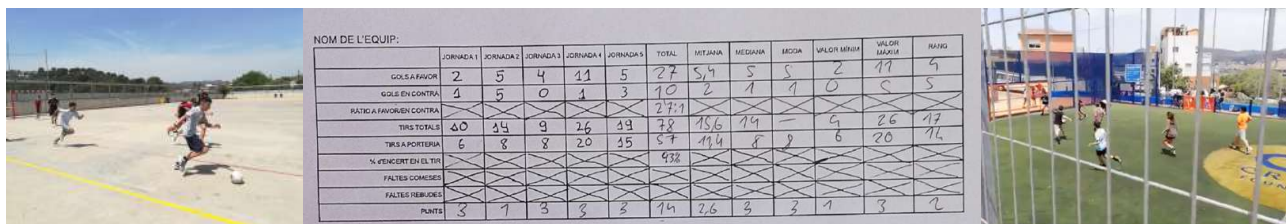 NOM DE L'EQUIP:
JORNADA 1 JORNADA 2 JORNADA 3 JORNADA 4 JORNADA 5 TOTAL MITJANA MEDIANA MODA VALOR MÍNIM VALOR MÀXIM RANG
GOLS A FAVOR 2 5 4 11 5 27 5,4 5 5 2 11 9
GOLS EN CONTRA 1 5 0 1 3 10 2 1 1 0 5 5
RÀTIO A FAVOR/EN CONTRA 27:1
TIRS TOTALS 10 14 9 26 19 78 15,6 14 — 9 26 17
TIRS A PORTERIA 6 8 8 20 15 57 11,4 8 8 6 20 14
% d'ENCERT EN EL TIR 93%
FALTES COMESES
FALTES REBUDES
PUNTS 3 1 3 3 3 14 2,6 3 3 1 3 2